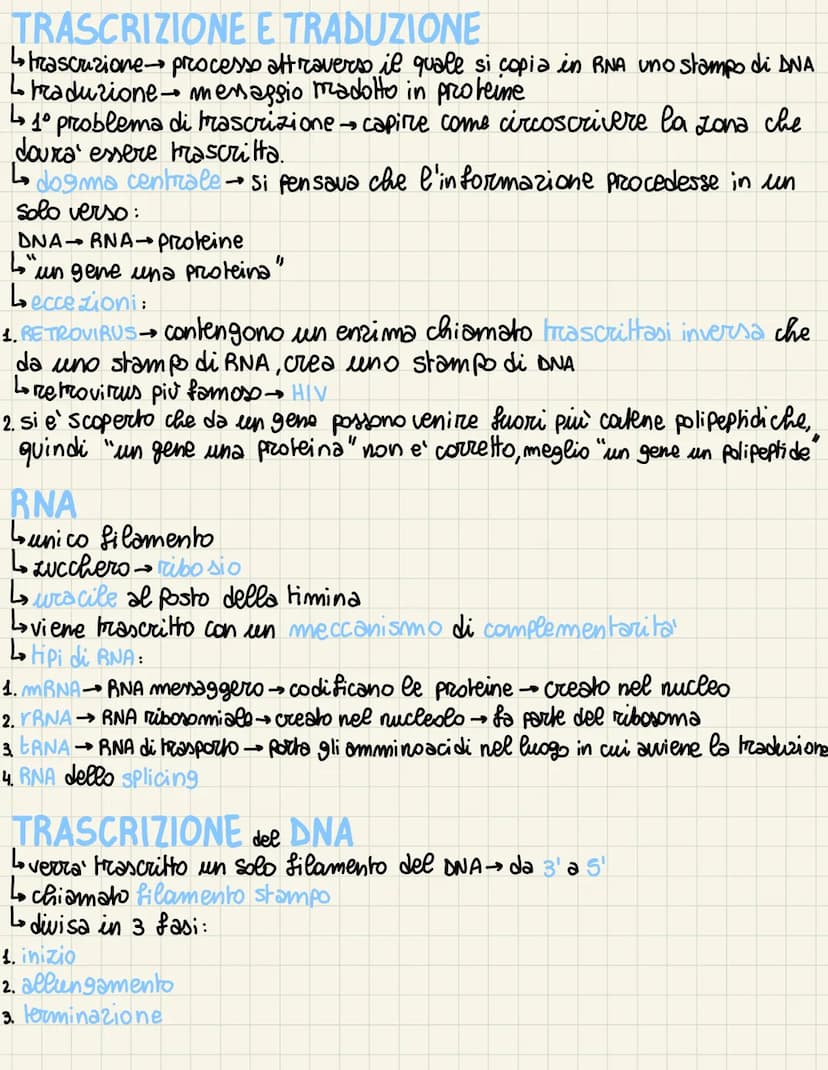 TRASCRIZIONE E TRADUZIONE
↳trascrizione→ processo attraverso il quale si copia in RNA uno stampo di DNA
↳traduzione→ messaggio tradotto in proteine
↳1° problema di trascrizione→capire come circoscrivere la zona che
dovra' essere trascritta.
↳dogma centrale→ si pensava che l'informazione procedesse in un
solo verso:
DNA→RNA→proteine
↳"un gene una proteina"
↳eccezioni:
1. RETROVIRUS→ contengono un enzima chiamato trascrittasi inversa che
da uno stampo di RNA, crea uno stampo di DNA
↳retrovirus più famoso→ HIV
2. si e' scoperto che da un gene possono venire fuori più catene polipeptidiche,
quindi "un gene una proteina" non e' corretto, meglio "un gene un polipeptide"
RNA
↳unico filamento
↳zucchero→ribosio
↳uracile al posto della timina
↳viene trascritto con un meccanismo di complementarita'
↳tipi di RNA:
1. mRNA→ RNA messaggero→codificano le proteine→ creato nel nucleo
2. rRNA→ RNA ribosomiale→creato nel nucleolo→fa parte del ribosoma
3. tRNA→ RNA di trasporto→ porta gli amminoacidi nel luogo in cui avviene la traduzione
4. RNA dello splicing
TRASCRIZIONE del DNA
↳verra' trascritto un solo filamento del DNA→ da 3' a 5'
↳chiamato filamento stampo
↳divisa in 3 fasi:
1. inizio
2. allungamento
3. terminazione